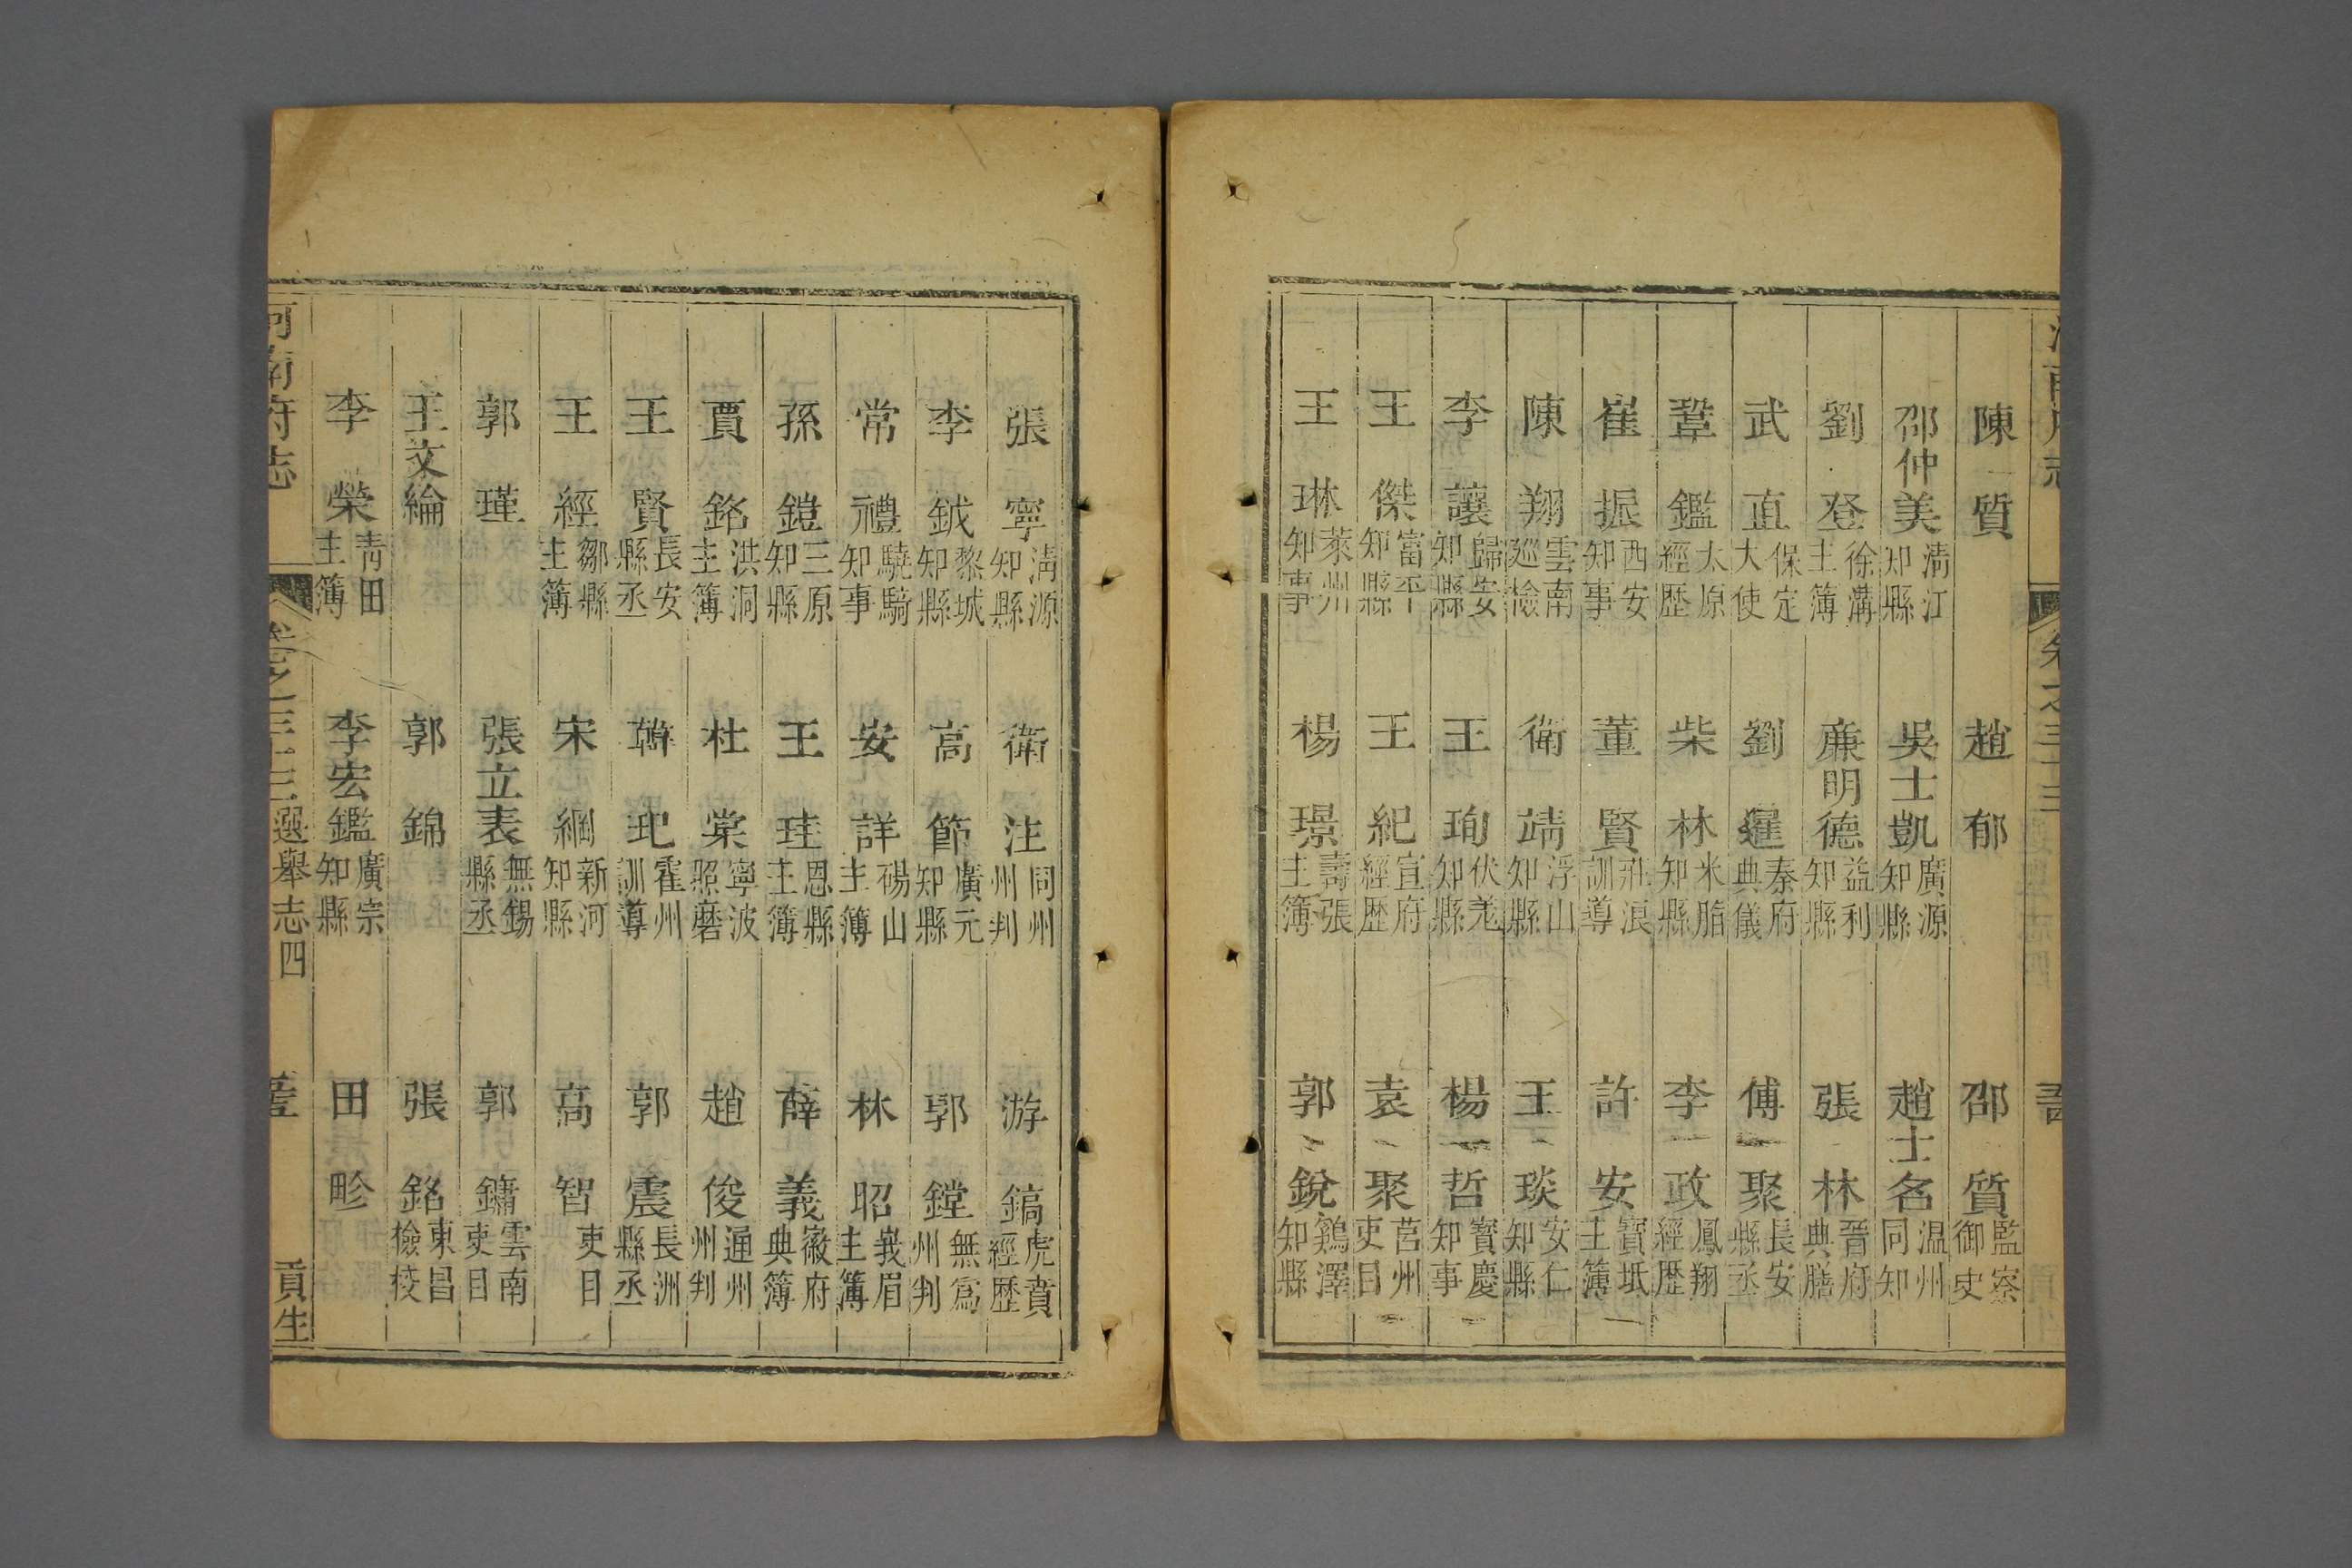 陳質　趙郁　邵質監察御史
邵仲美清江知縣　吳士凱廣源知縣　趙士名温州同知
劉登徐溝主簿　廉明德益利知縣　張林晉府典膳
武直保定大使　劉暹秦府典儀　傅聚長安縣丞
鞏鑑太原經歷　柴林米脂知縣　李政鳳翔經歷
崔振西安知事　董賢飛浪訓導　許安寶坻主簿
陳翔雲南巡檢　衛靖浮山知縣　王琰安仁知縣
李讓歸安知縣　王珣伏羌知縣　楊哲寶慶知事
王傑富平知縣　王紀宣府經歷　袁聚莒州吏目
王琳萊州知事　楊璟壽張主簿　郭銳鷄澤知縣
張寧清源知縣　衛注同州州判　游鎬虎賁經歷
李鉞黎城知縣　高節廣元知縣　郭鏜無爲州判
常禮驍騎知事　安詳碭山主簿　林昭峩眉主簿
孫鎧三原知縣　王珪恩縣主簿　薛義徽府典簿
賈銘洪洞主簿　杜棠寧波照磨　趙俊通州州判
王賢長安縣丞　韓玘霍州訓導　郭震長洲縣丞
王經鄒縣主簿　宋綱新河知縣　高智吏目
郭瑾　張立表無錫縣丞　郭鏞雲南吏目
王文綸　郭錦　張銘東昌檢校
李榮青田主簿　李宏鑑廣宗知縣　田畛
河南府志　卷之三十三　選舉志四　貢生